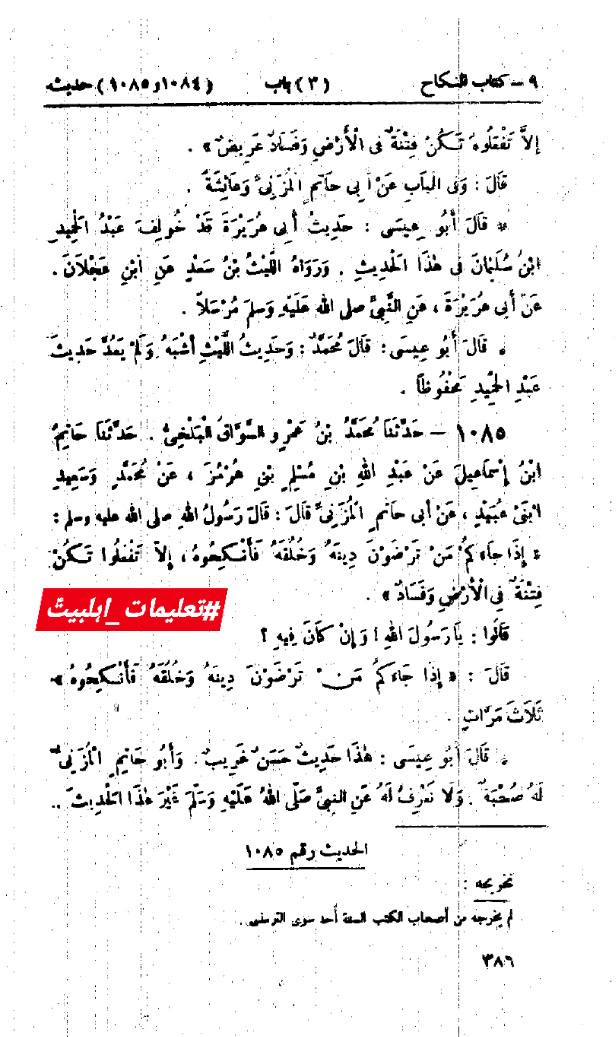 ٩ – كتاب النكاح (٣) باب (١٠٨٤ و ١٠٨٥) حديث
إلاَّ تَفْعَلُوهُ تَكُنْ فِتْنَةٌ فِى الْأَرْضِ وَفَسَادٌ عَرِيضٌ » .
قَالَ : وَفِى الْبَابِ عَنْ أَبِى حَاتِمٍ الْمُزَنِىِّ وَعَائِشَةَ .
* قَالَ أَبُو عِيسَى : حَدِيثُ أَبِى هُرَيْرَةَ قَدْ خُولِفَ عَبْدُ الْحَمِيدِ
ابْنُ سُلَيْمَانَ فِى هٰذَا الْحَدِيثِ . وَرَوَاهُ اللَّيْثُ بْنُ سَعْدٍ عَنِ ابْنِ عَجْلَانَ .
عَنْ أَبِى هُرَيْرَةَ ، عَنِ النَّبِىِّ صلى الله عَلَيْهِ وَسَلمَ مُرْسَلاً .
* قَالَ أَبُو عِيسَى : قَالَ مُحَمَّدٌ : وَحَدِيثُ اللَّيْثِ أَشْبَهُ وَلَمْ يَعُدَّ حَدِيثَ
عَبْدِ الْحَمِيدِ مَحْفُوظاً .
١٠٨٥ – حَدَّثَنَا مُحَمَّدُ بْنُ عَمْرٍو السَّوَّاقُ الْبَلْخِىُّ . حَدَّثَنَا حَاتِمُ
ابْنُ إِسْمَاعِيلَ عَنْ عَبْدِ اللهِ بْنِ مُسْلِمِ بْنِ هُرْمُزَ ، عَنْ مُحَمَّدٍ وَسَعِيدٍ
ابْنَىْ عُبَيْدٍ ، عَنْ أَبِى حَاتِمٍ الْمُزَنِىِّ قَالَ : قَالَ رَسُولُ اللهِ صلى الله عليه وسلم :
« إِذَا جَاءَكُمْ مَنْ تَرْضَوْنَ دِينَهُ وَخُلُقَهُ فَأَنْكِحُوهُ ، إِلاَّ تَفْعَلُوا تَكُنْ
فِتْنَةٌ فِى الْأَرْضِ وَفَسَادٌ » .
#تعليمات_ابلبيتؑ
قَالُوا : يَا رَسُولَ اللهِ ! وَإِنْ كَانَ فِيهِ ؟
قَالَ : « إِذَا جَاءَكُمْ مَنْ تَرْضَوْنَ دِينَهُ وَخُلُقَهُ فَأَنْكِحُوهُ »
ثَلَاثَ مَرَّاتٍ .
* قَالَ أَبُو عِيسَى : هٰذَا حَدِيثٌ حَسَنٌ غَرِيبٌ . وَأَبُو حَاتِمٍ الْمُزَنِىُّ
لَهُ صُحْبَةٌ . وَلَا نَعْرِفُ لَهُ عَنِ النَّبِىِّ صَلَّى اللهُ عَلَيْهِ وَسَلَّمَ غَيْرَ هٰذَا الْحَدِيثِ ..
الحديث رقم ١٠٨٥
تخريجه :
لم يخرجه من أصحاب الكتب الستة أحد سوى الترمذى .
٣٨٦